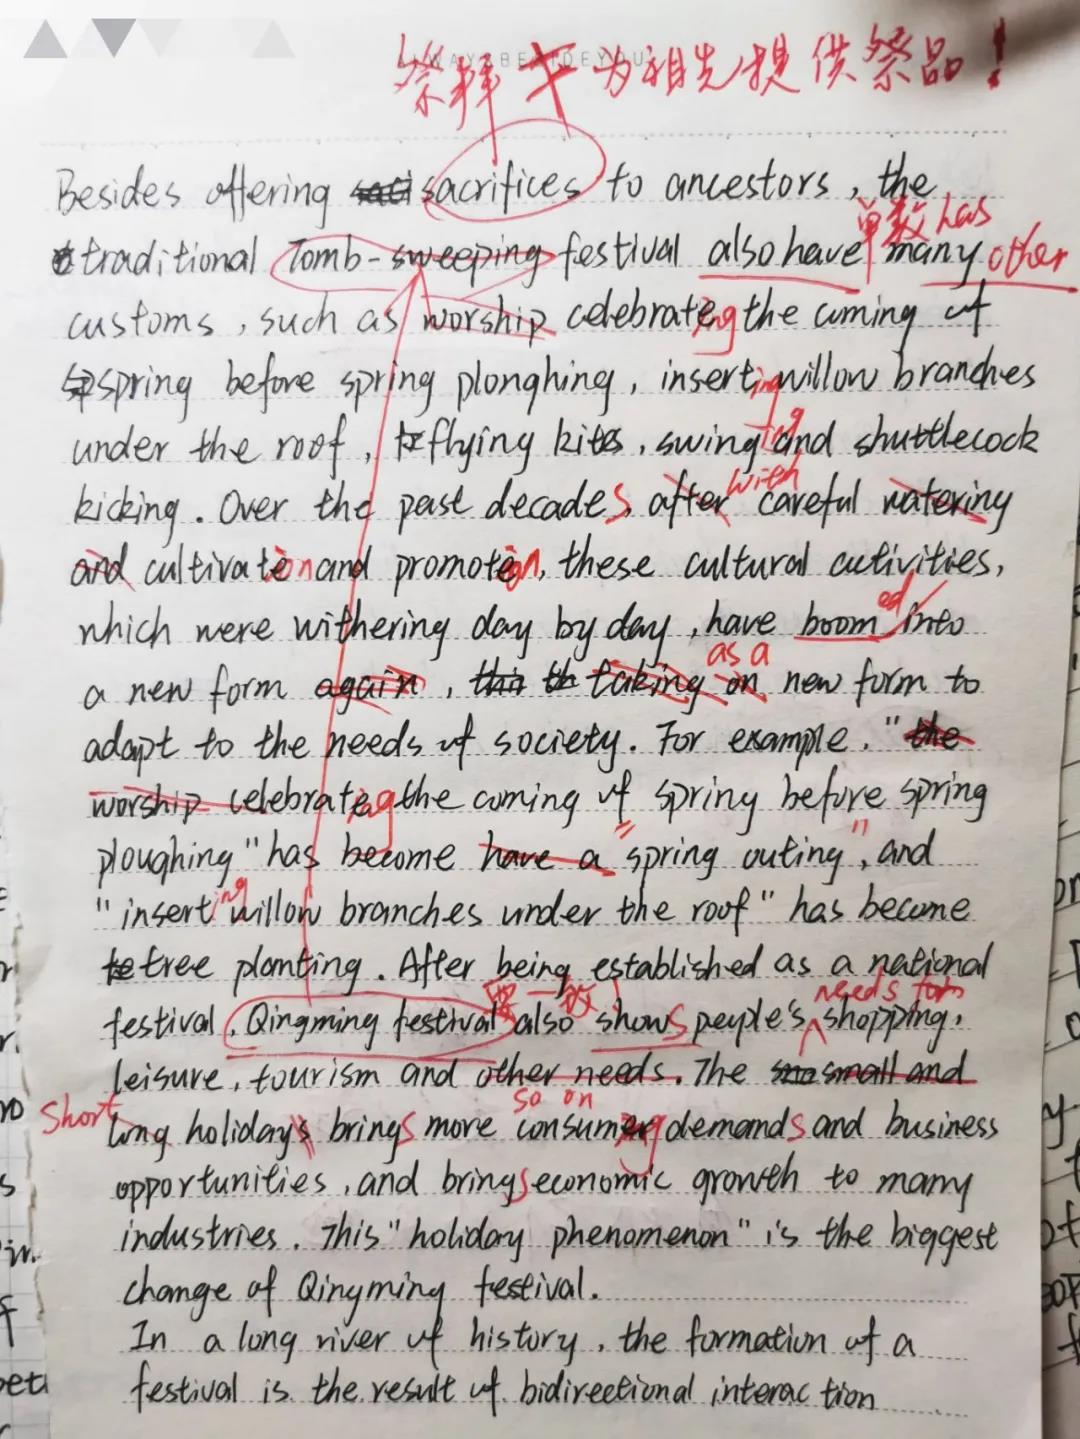 WAYS BESIDE YOU
祭拜≠为祖先提供祭品!
Besides offering sacrifices to ancestors, the
单数 has
traditional Tomb-sweeping festival also have many other
customs, such as worship celebrateing the coming of
spring before spring plonghing, inserting willow branches
under the roof, flying kites, swinging and shuttlecock
with
kicking. Over the past decades, after careful watering
and cultivateion and promoteion, these cultural activities,
ed
which were withering day by day, have boom into
as a
a new form again, this th taking on new form to
adapt to the needs of society. For example, "the
worship celebrateing the coming of spring before spring
ploughing" has become have a "spring outing", and
"inserting willow branches under the roof" has become
te tree planting. After being established as a national
要一致! needs for
festival, Qingming festival also shows people's shopping,
leisure, tourism and other needs. The small and
Short so on
long holiday's brings more consumeing demands and business
opportunities, and brings economic growth to many
industries. This "holiday phenomenon" is the biggest
change of Qingming festival.
In a long river of history, the formation of a
festival is the result of bidirectional interaction